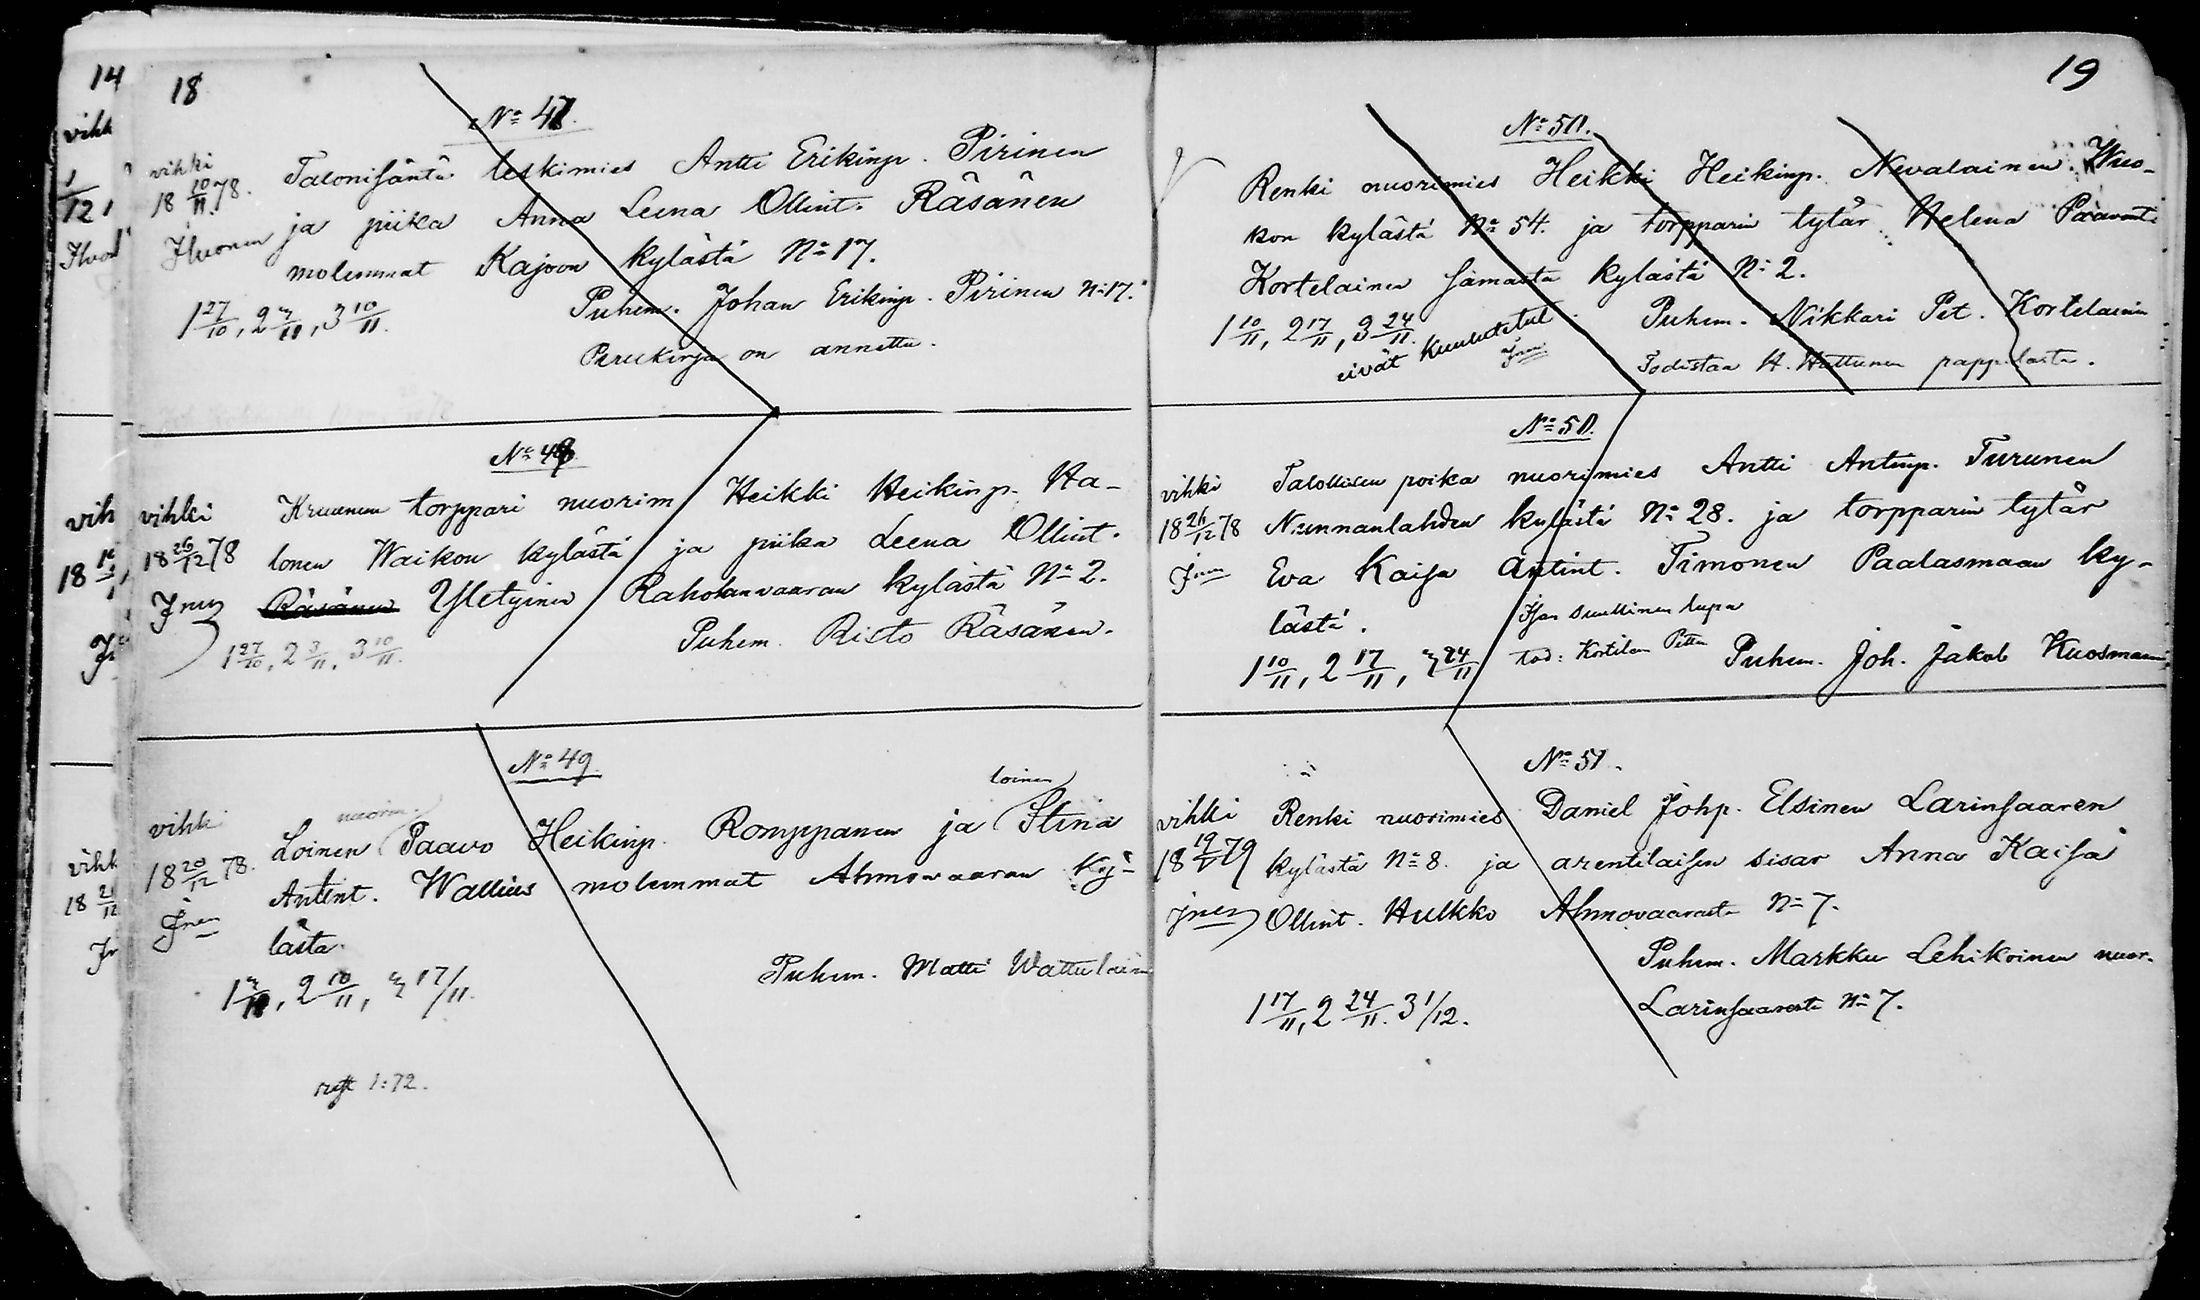 18
No 47.
vihki
18 10/11 78.
Talonisäntä leskimies Antti Erikinp. Pirinen
ja piika Anna Leena Ollint. Räsänen
molemmat Kajoon kylästä No 17.
Puhem. Johan Erikinp. Pirinen No 17.
Perukirja on annettu.
No 48
vihki
18 26/12 78
Kruunun torppari nuorim Heikki Heikinp. Ha-
lonen Waikon kylästä ja piika Leena Ollint.
Räsänen Yletyinen Raholanvaaran kylästä No 2.
1 27/10, 2 3/11, 3 10/11.
Puhem. Risto Räsänen.
No 49.
vihki
18 20/12 78.
nuorim. loinen
Loinen Paavo Heikinp. Romppanen ja Stina
Antint. Wallius molemmat Ahmovaaran ky-
lästä.
Puhem. Matti
1:72.
19
No 50.
Renki nuorimies Heikki Heikinp. Nevalainen Wuo-
kon kylästä No 54. ja torpparin tytär Helena Paavont.
Kortelainen samasta kylästä No 2.
1 10/11, 2 17/11, 3 24/11.
eivät kuulutetut.
Puhem. Nikkari Pet. Kortelainen
Todistaa H. Hattunen pappilasta.
No 50.
vihki
18 26/12 78
Talollisen poika nuorimies Antti Antinp. Turunen
Nunnanlahden kylästä No 28. ja torpparin tytär
Eva Kaisa Antint. Timonen Paalasmaan ky-
lästä.
Isän suullinen lupa
1 10/11, 2 17/11, 3 24/11
Puhem. Joh. Jakob Kuosmanen
No 51.
vihki
Renki nuorimies Daniel Johp. Elsinen Larinsaaren
kylästä No 8. ja arentilaisen sisar Anna Kaisa
Ollint. Hulkko Ahmovaarasta No 7.
Puhem. Markku Lehikoinen nuor.
1 17/11, 2 24/11. 3 1/12.
Larinsaaresta No 7.